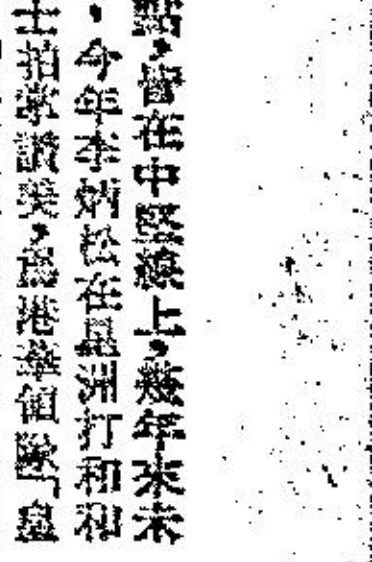 點，皆在中堅線上，幾年來未
，今年李炳松在星洲打和和
士拍掌讚美，香港華伯隊「皇